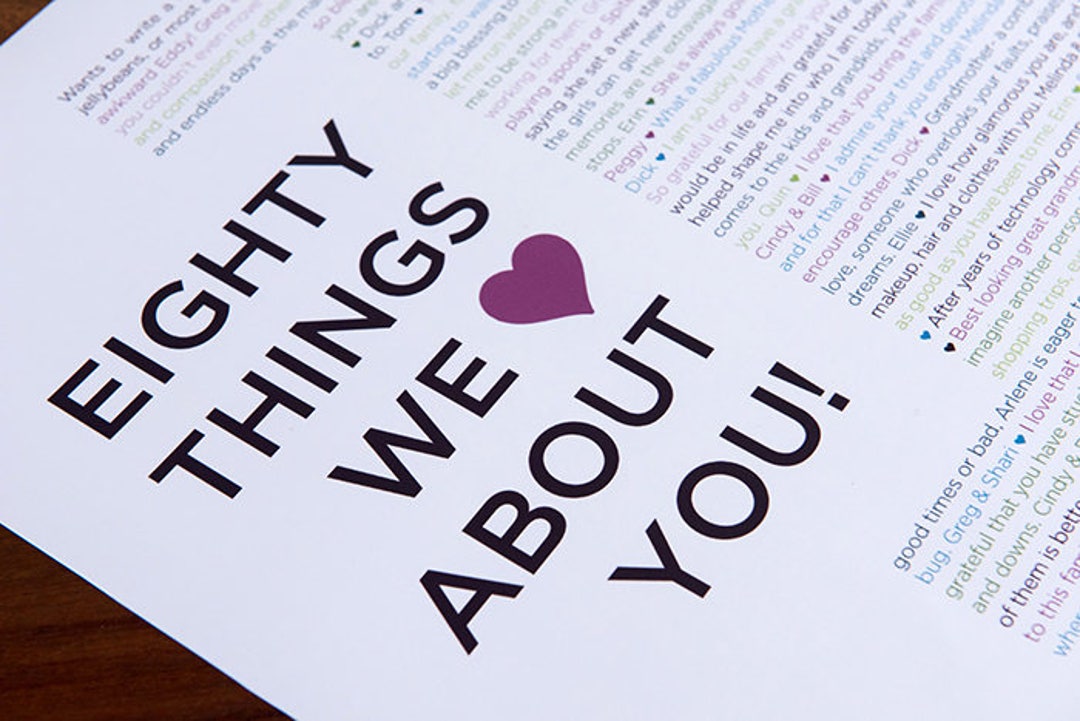 Wants to write a
jellybeans, or most
awkward Eddy! Greg
you couldn't even move
and compassion for
and endless days at the
EIGHTY
THINGS
WE ♥
ABOUT
YOU!
so
♥ Dick
to. Tom ♥
our family,
starting to
a big blessing to
let me run wild on
me to be strong
working for them.
playing spoons or
saying she set a new
the girls can get new
memories are the
stops. Erin ♥ She is always
Peggy ♥ What a fabulous
Dick ♥ I am so lucky to have a
So grateful for our family trips
would be in life and am grateful for
helped shape me into who I am today
comes to the kids and grandkids, you
you. Quin ♥ I love that you bring the
Cindy & Bill ♥ I admire your trust and
and for that I can't thank you enough! Melinda
encourage others. Dick ♥ Grandmother, a
love, someone who overlooks your faults,
dreams. Ellie ♥ I love how glamorous you are,
makeup, hair and clothes with you. Melinda
as good as you have been to me Erin ♥
♥ After years of technology
♥ Best looking great
imagine another
shopping trips,
good times or bad, Arlene is eager
bug. Greg & Shari ♥ I love that
grateful that you have
and downs. Cindy &
of them is
to this